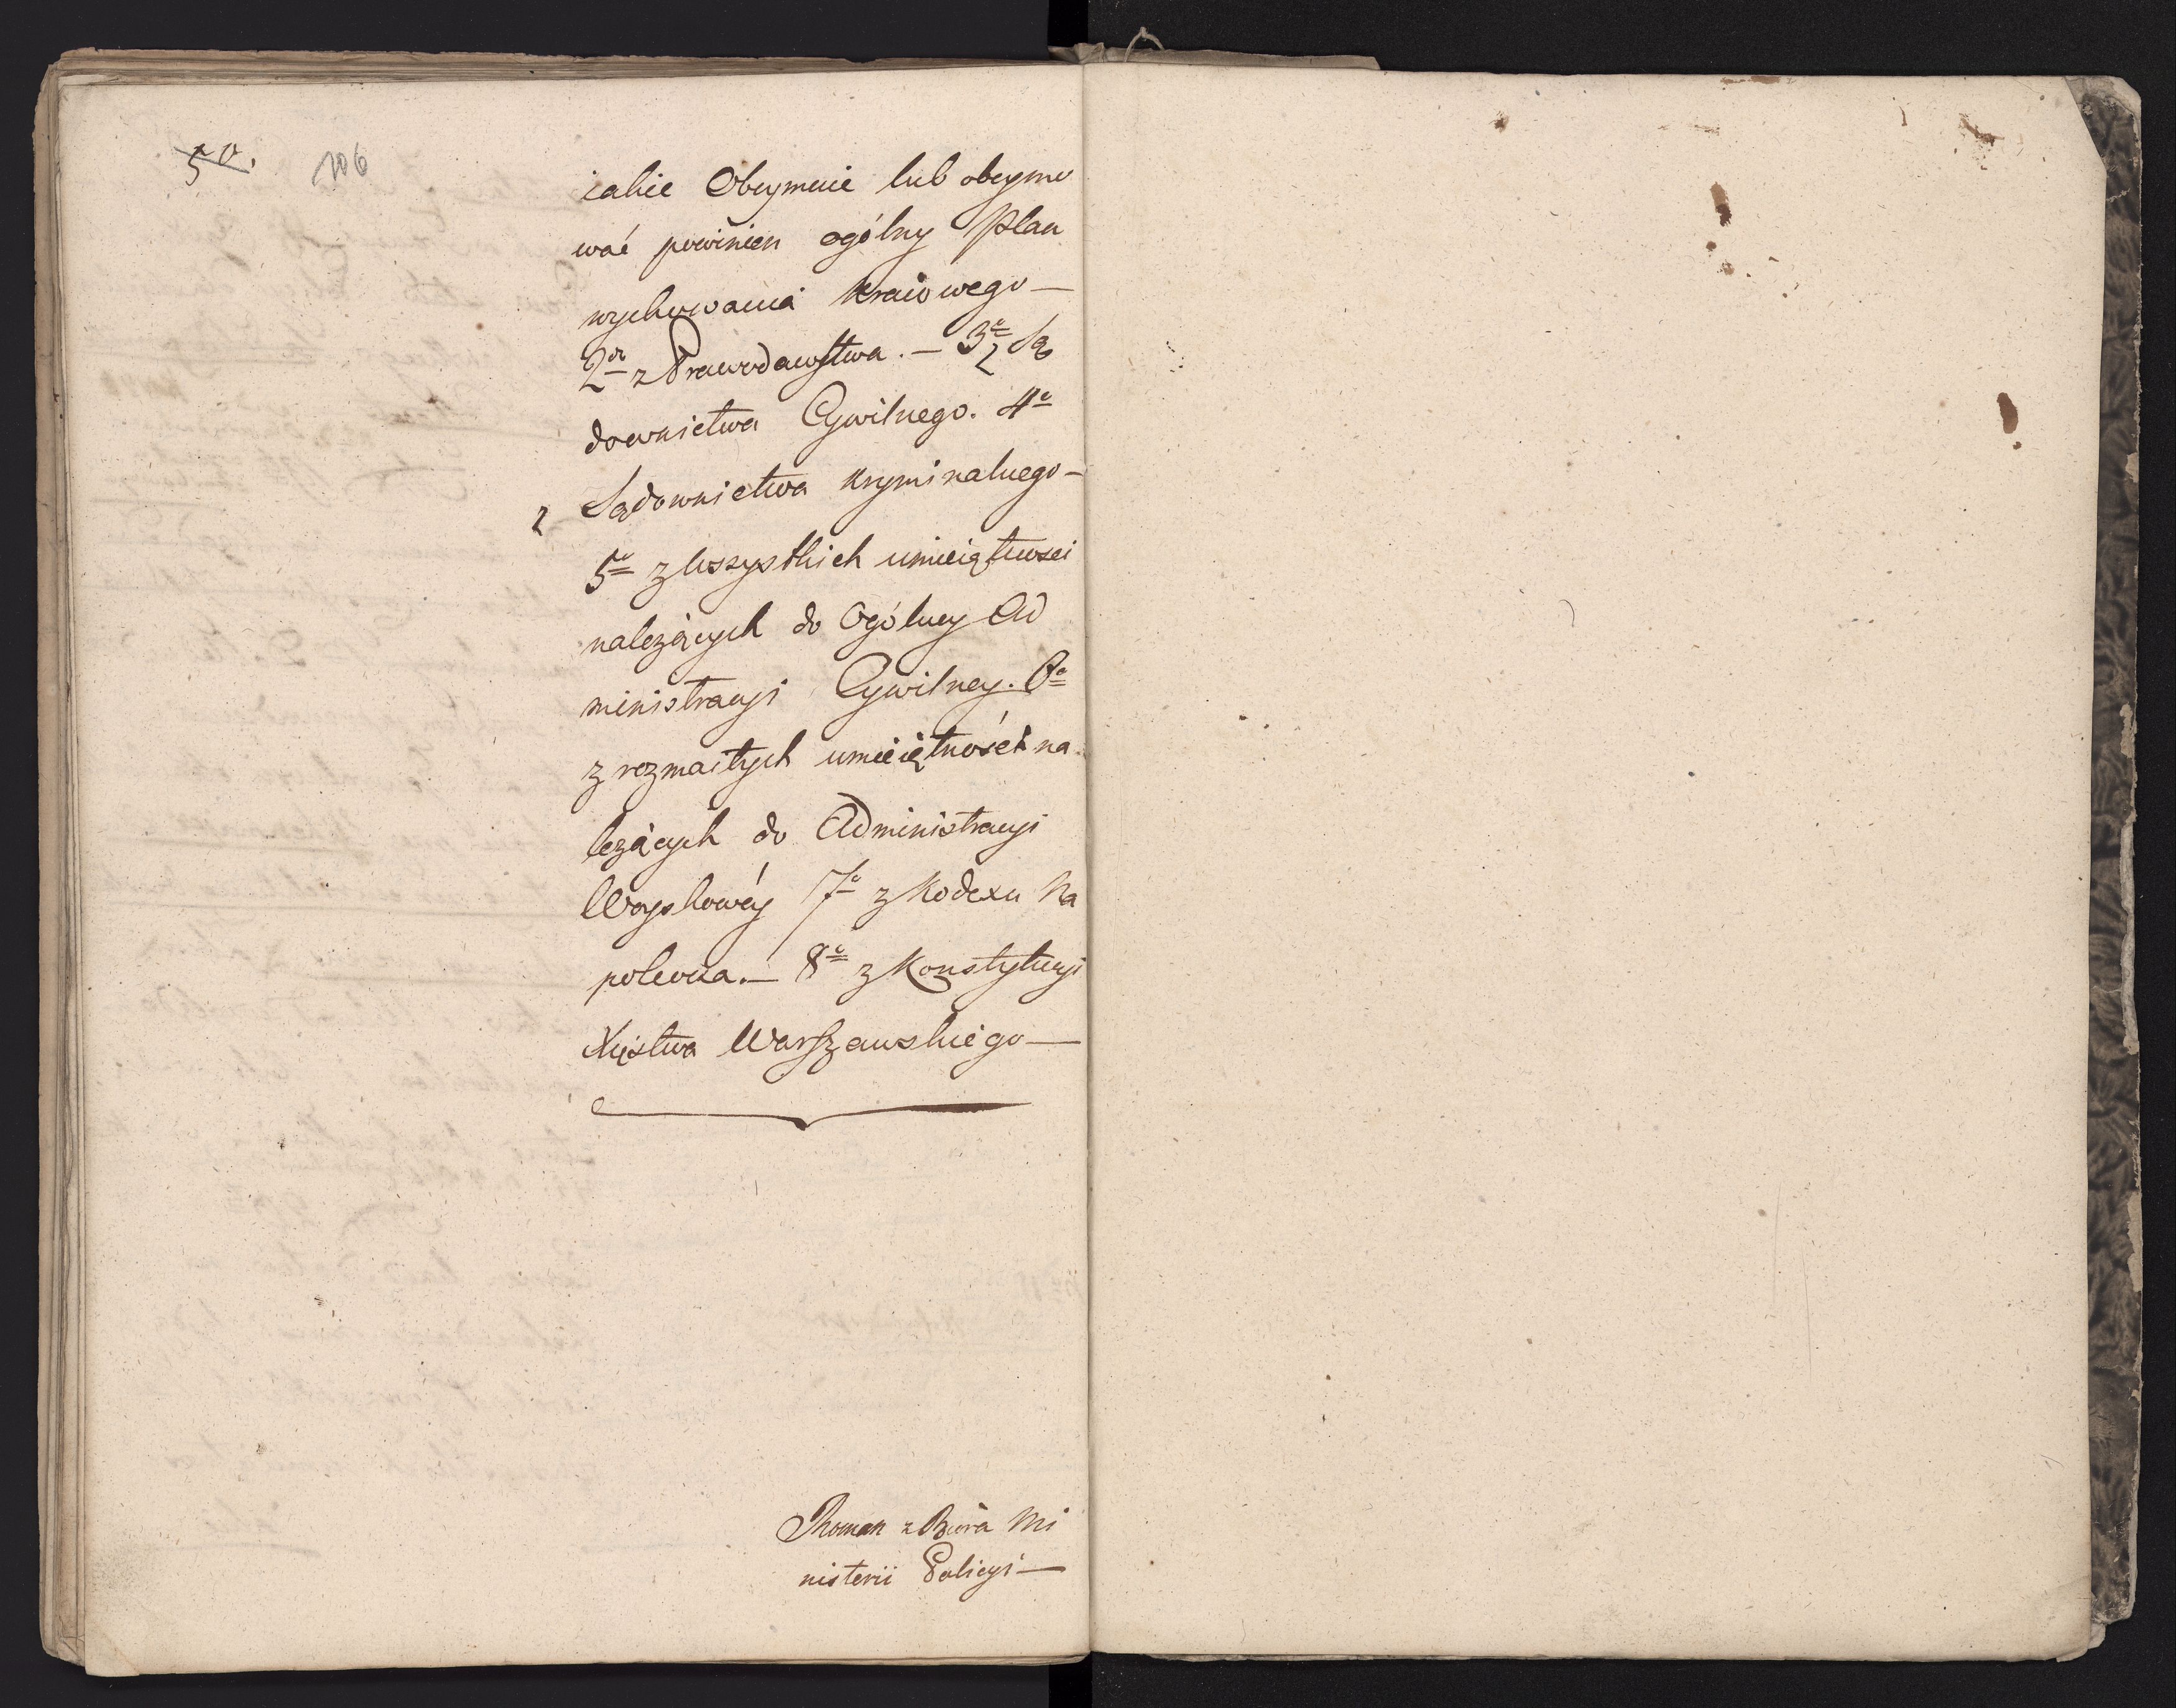 50.
106
iakie Obeymuie lub obeymo
wać powinien ogólny Plan
wychowania kraiowego —
2do z Prawodawstwa. — 3o z Są
downictwa Cywilnego. 4o
z Sądownictwa kryminalnego —
5o z wszystkich umieiętnosci
należących do Ogólney Ad
ministracyi Cywilney. 6o
z rozmaitych umieiętności na
leżących do Administracyi
Woyskowéy 7o z Kodexu Na
poleona. — 8o z Konstytucyi
Xięstwa Warszawskiego —
Roman z Biora Mi
nisterii Policyi —